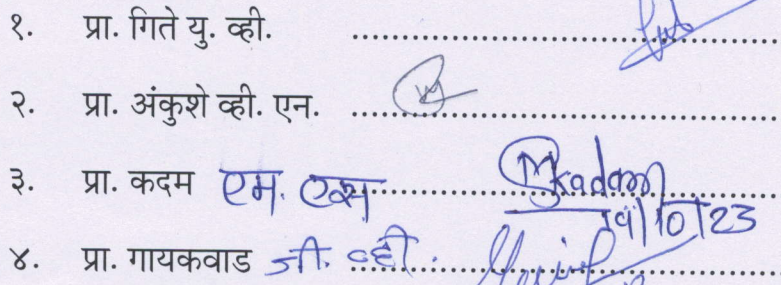 १. प्रा. गिते यु. व्ही. ........................................
२. प्रा. अंकुशे व्ही. एन. ........................................
३. प्रा. कदम एम. एस ........................ Mkadam
19/10/23
४. प्रा. गायकवाड जी. व्ही. ........................